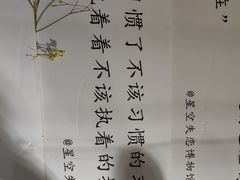 @星空失恋博物馆
惯了不该习惯的
着着不该执着的
@星空失